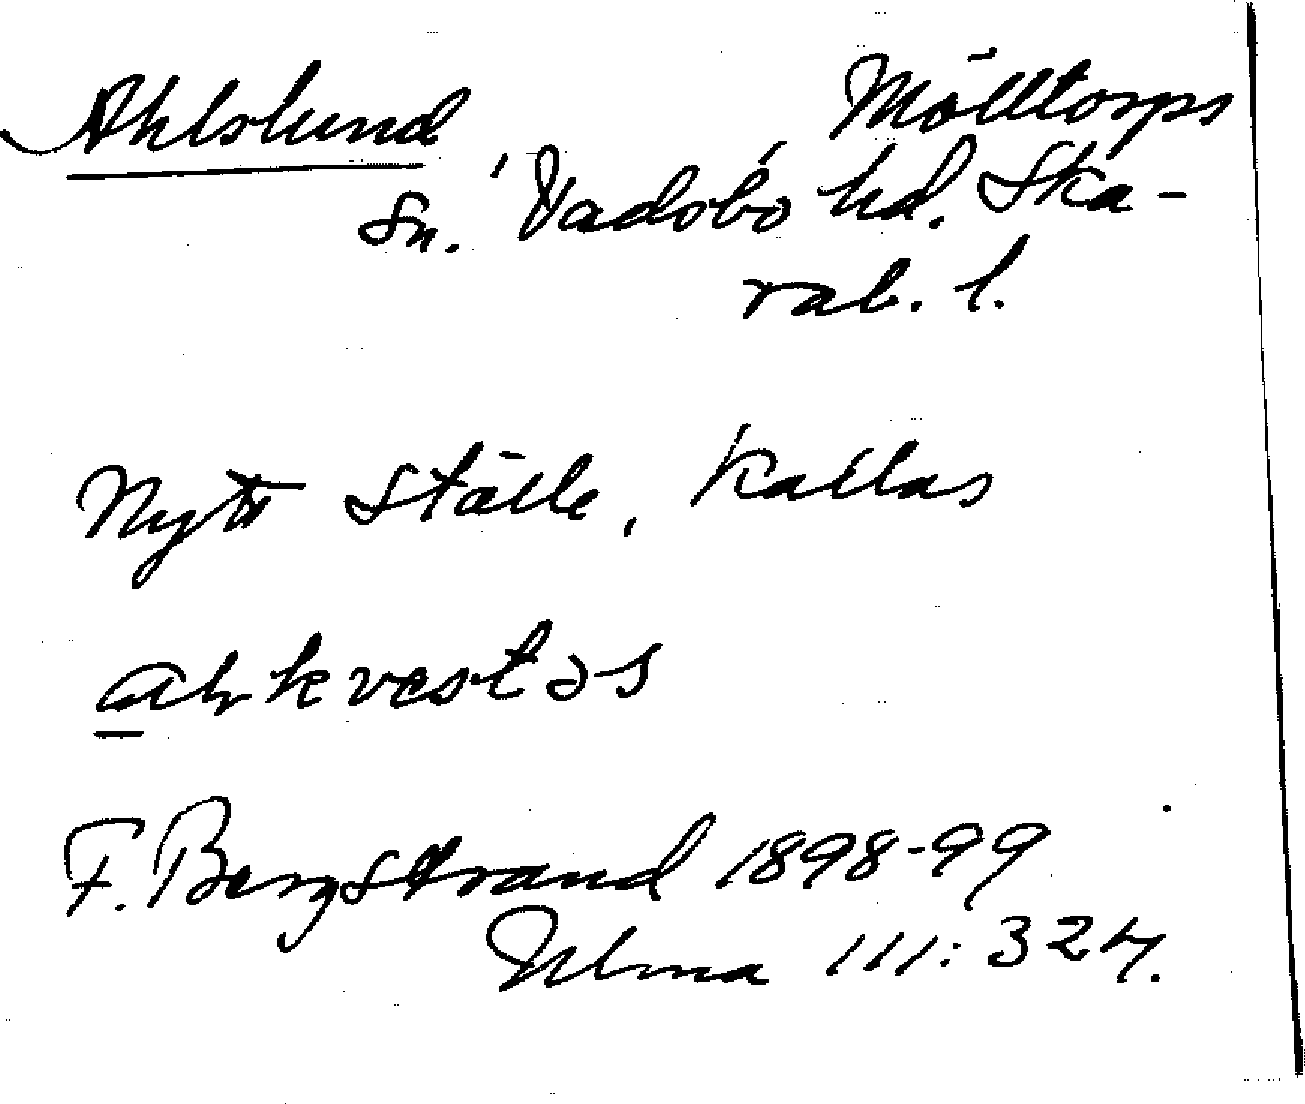 Ahlslund Mölltorps
Sn. Vadsbo hd. Ska-
rab. l.
Nytt ställe, kallas
ahkvestəs
F. Bergstrand 1898-99
Ulma 111:324.